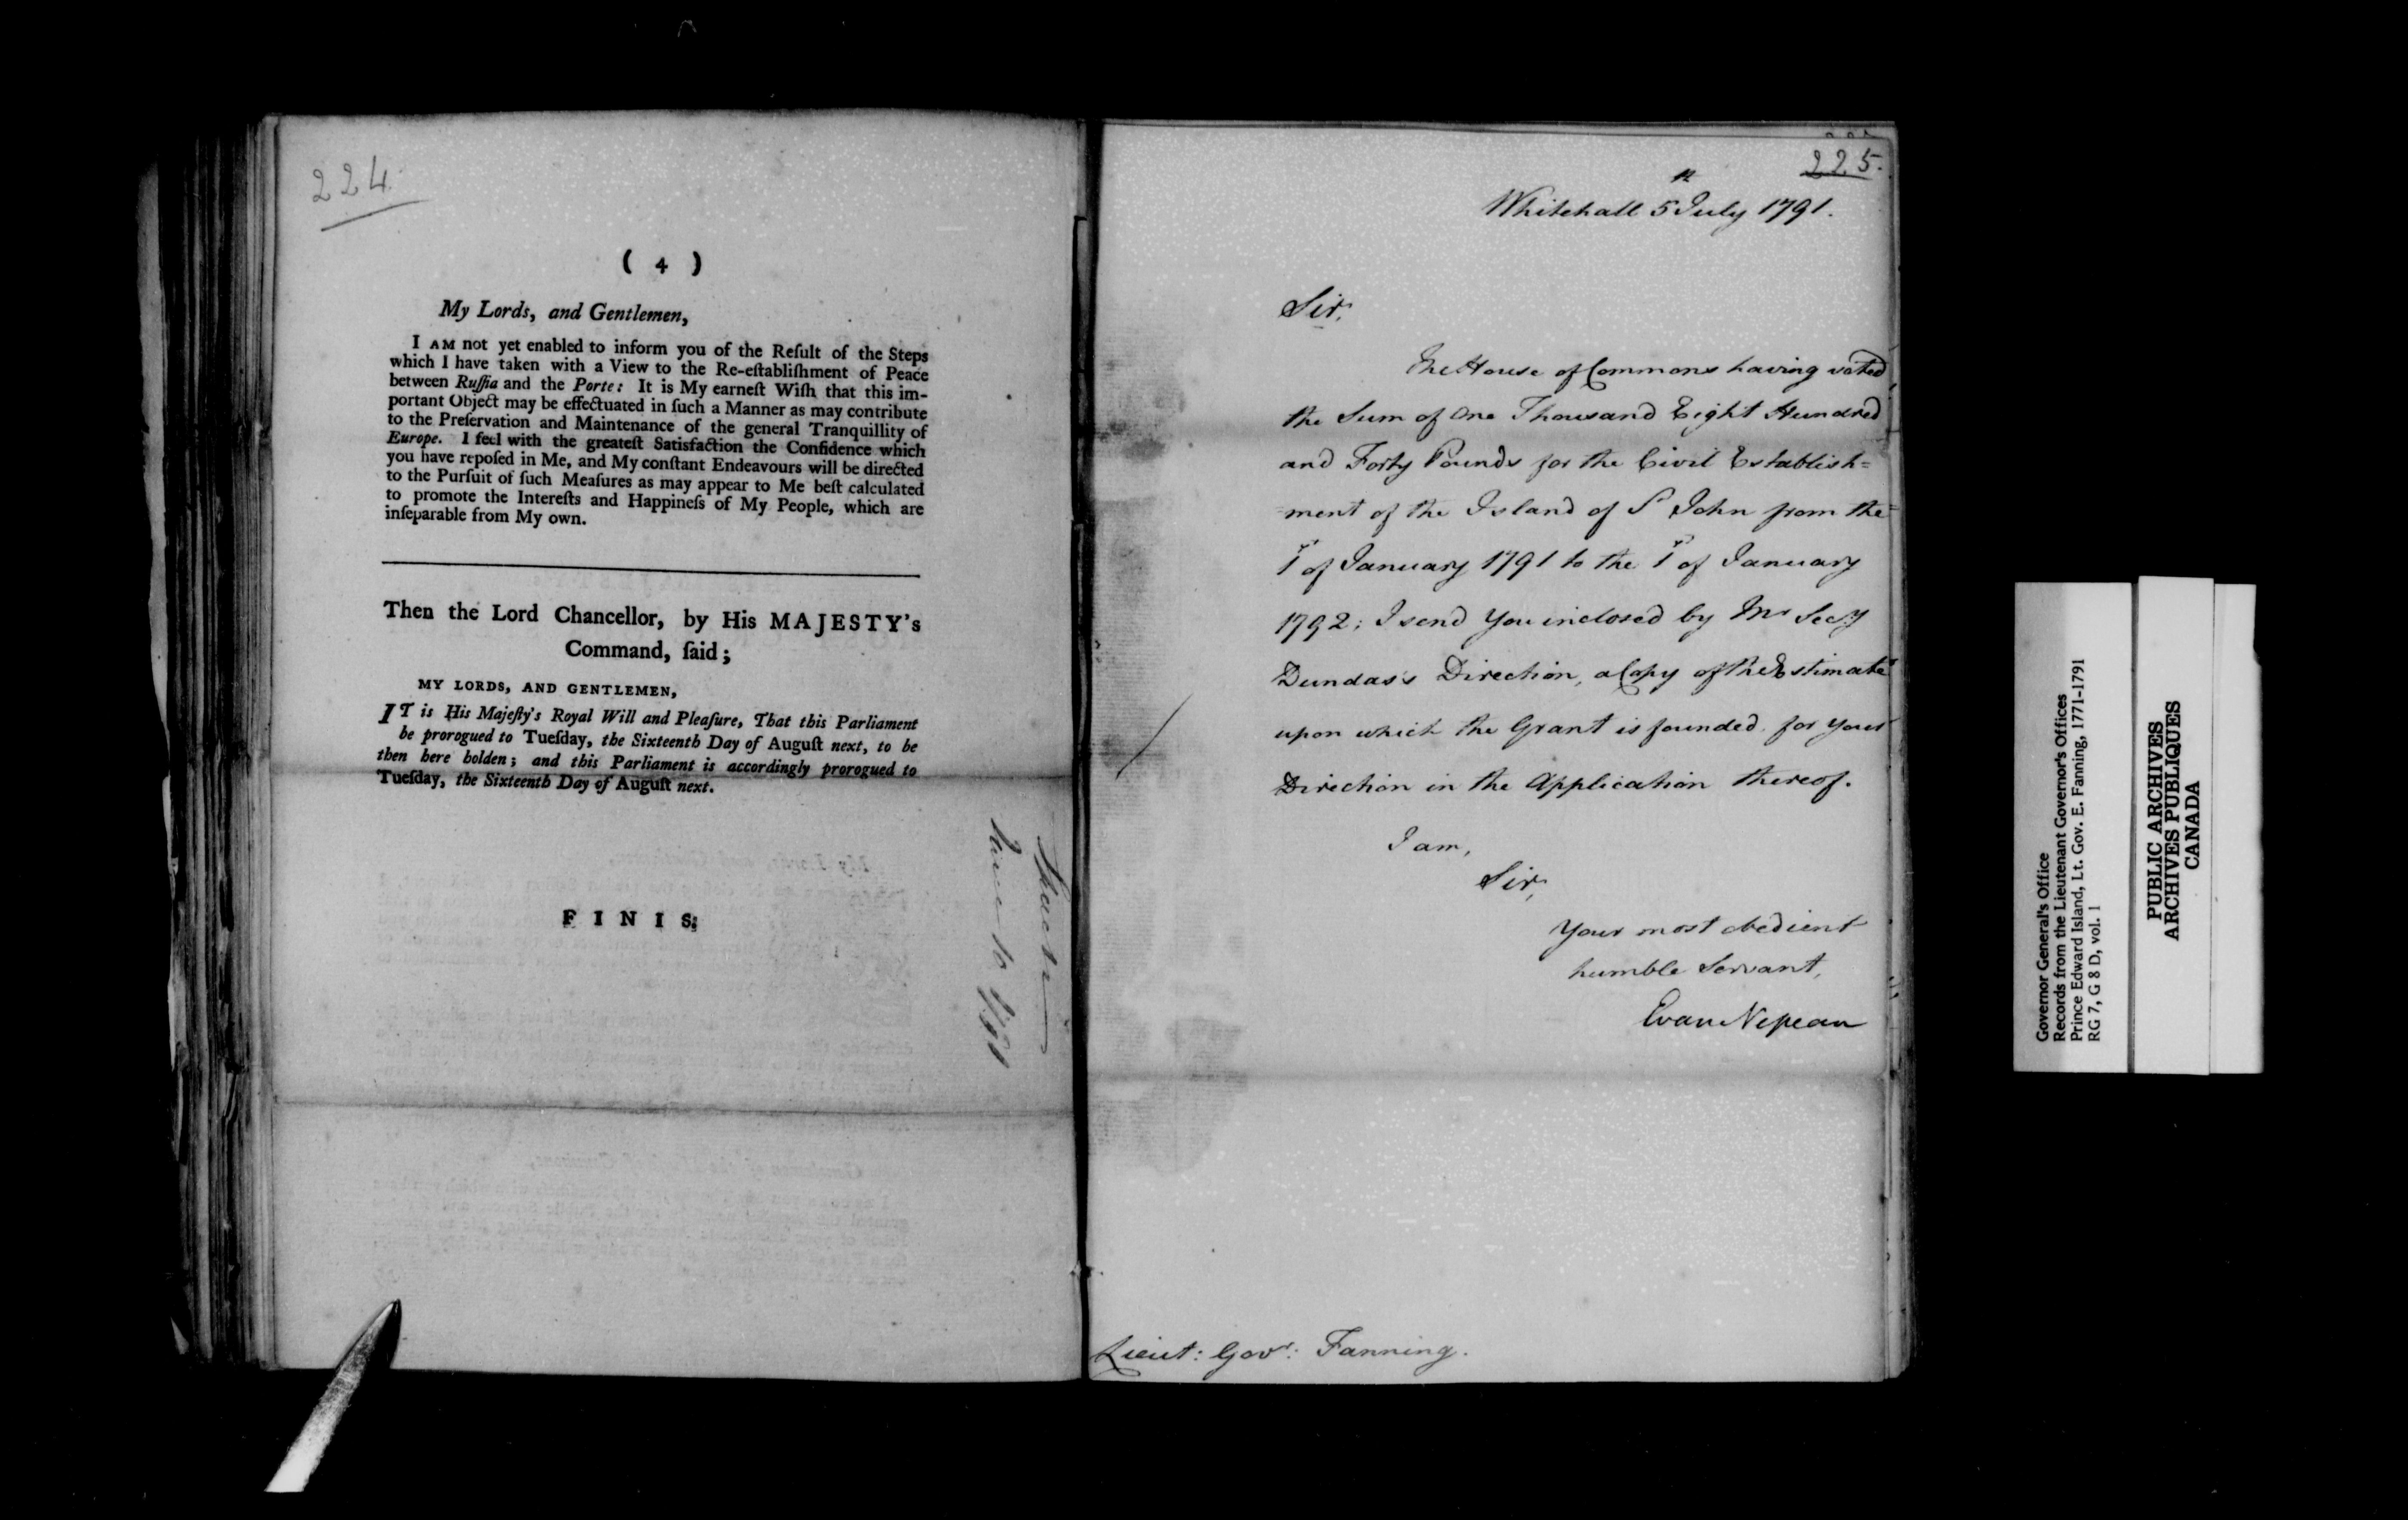 224.
( 4 )
My Lords, and Gentlemen,
I AM not yet enabled to inform you of the Reſult of the Steps
which I have taken with a View to the Re-eſtabliſhment of Peace
between Ruſſia and the Porte: It is My earneſt Wiſh that this im-
portant Object may be effectuated in ſuch a Manner as may contribute
to the Preſervation and Maintenance of the general Tranquillity of
Europe. I feel with the greateſt Satisfaction the Confidence which
you have repoſed in Me, and My conſtant Endeavours will be directed
to the Purſuit of ſuch Meaſures as may appear to Me beſt calculated
to promote the Intereſts and Happineſs of My People, which are
inſeparable from My own.
Then the Lord Chancellor, by His MAJESTY's
Command, ſaid;
MY LORDS, AND GENTLEMEN,
IT is His Majeſty's Royal Will and Pleaſure, That this Parliament
be prorogued to Tueſday, the Sixteenth Day of Auguſt next, to be
then here holden; and this Parliament is accordingly prorogued to
Tueſday, the Sixteenth Day of Auguſt next.
FINIS.
225.
Whitehall 5th July 1791.
Sir,
The House of Commons having voted
the Sum of One Thousand Eight Hundred
and Forty Pounds for the Civil Establish=
=ment of the Island of St John from the
1st of January 1791 to the 1st of January
1792; I send you inclosed by Mr Secy
Dundas's Direction, a Copy of the Estimate
upon which the Grant is founded, for your
Direction in the Application thereof.
I am,
Sir,
Your most obedient
humble Servant,
Evan Nepean
Lieut: Govr: Fanning.
Governor General's Office
Records from the Lieutenant Governor's Offices
Prince Edward Island, Lt. Gov. E. Fanning, 1771-1791
RG 7, G 8 D, vol. 1
PUBLIC ARCHIVES
ARCHIVES PUBLIQUES
CANADA